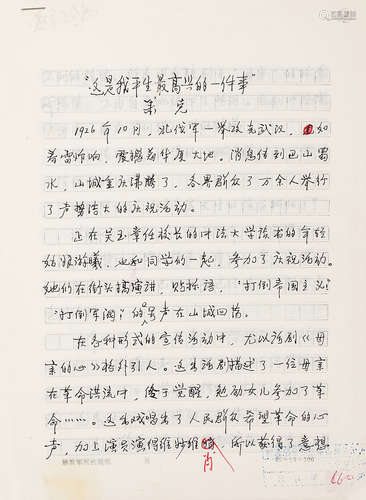 "这是我平生最高兴的一件事"
萧克
1926年10月,北伐军一举攻克武汉,如
春雷炸响,震撼着华夏大地。消息传到巴山蜀
水,山城重庆沸腾了,各界群众了万余人举行
了声势浩大的庆祝活动。
正在吴玉章任校长的中法大学读书的年轻
姑娘游曦,也和同学们一起,参加了庆祝活动。
她们在街头搞演讲,贴标语,"打倒帝国主义"
"打倒军阀"的吼声在山城回荡。
在各种形式的宣传活动中,尤以话剧《母
亲的心》格外引人。这出话剧描述了一位母亲
在革命洪流中,终于觉醒,勉励女儿参加了革
命……。这出戏唱出了人民群众希望革命的心
声,加上演员演得维妙维肖,所以获得了意想